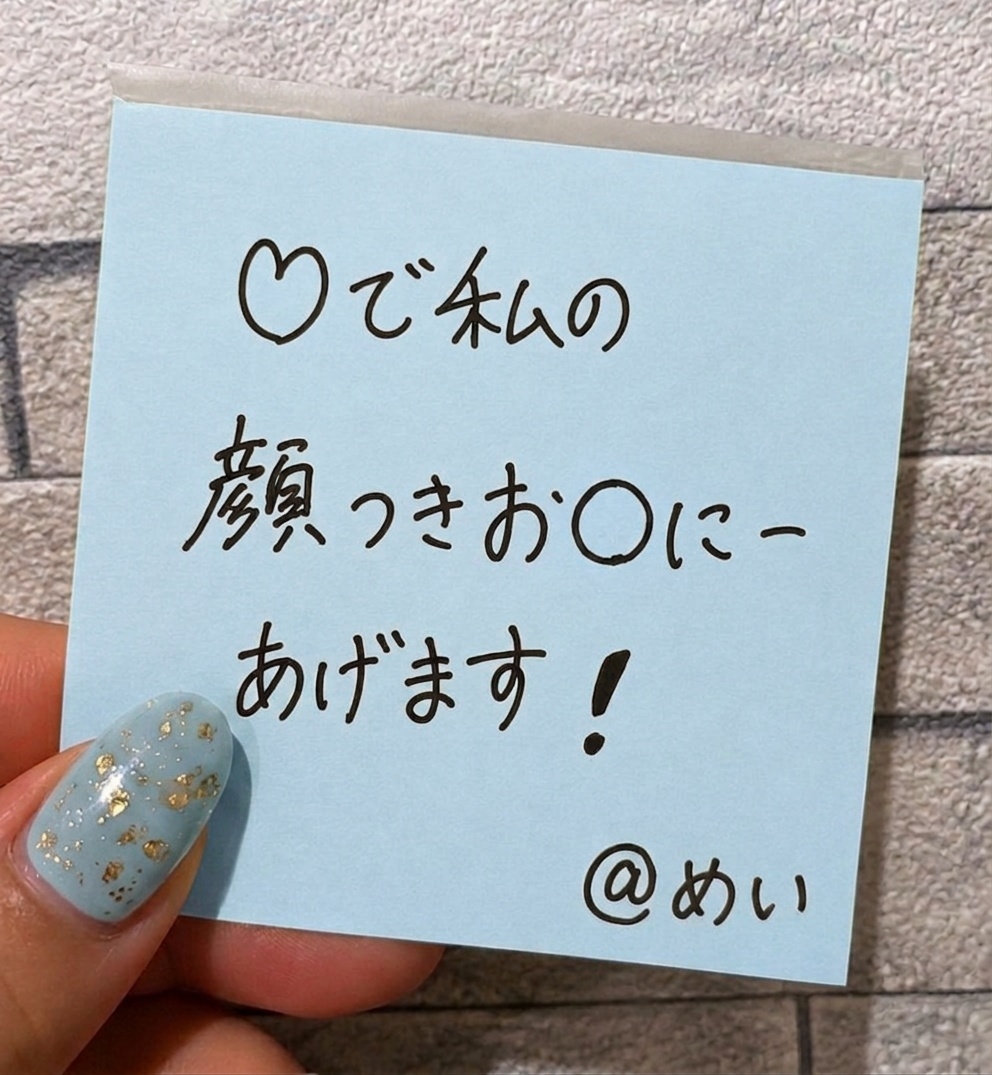 ♡で私の
顔つきお○にー
あげます！
@めい